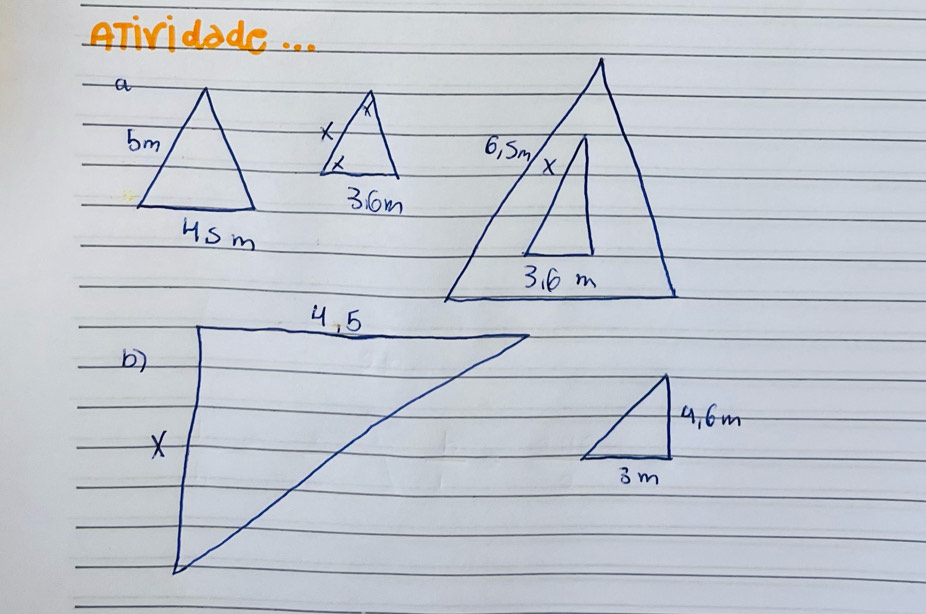 ATividade ...
a
5m
4,5 m
x
x
x
3,6m
6,5m
x
3,6 m
b)
4,5
X
4,6m
3m